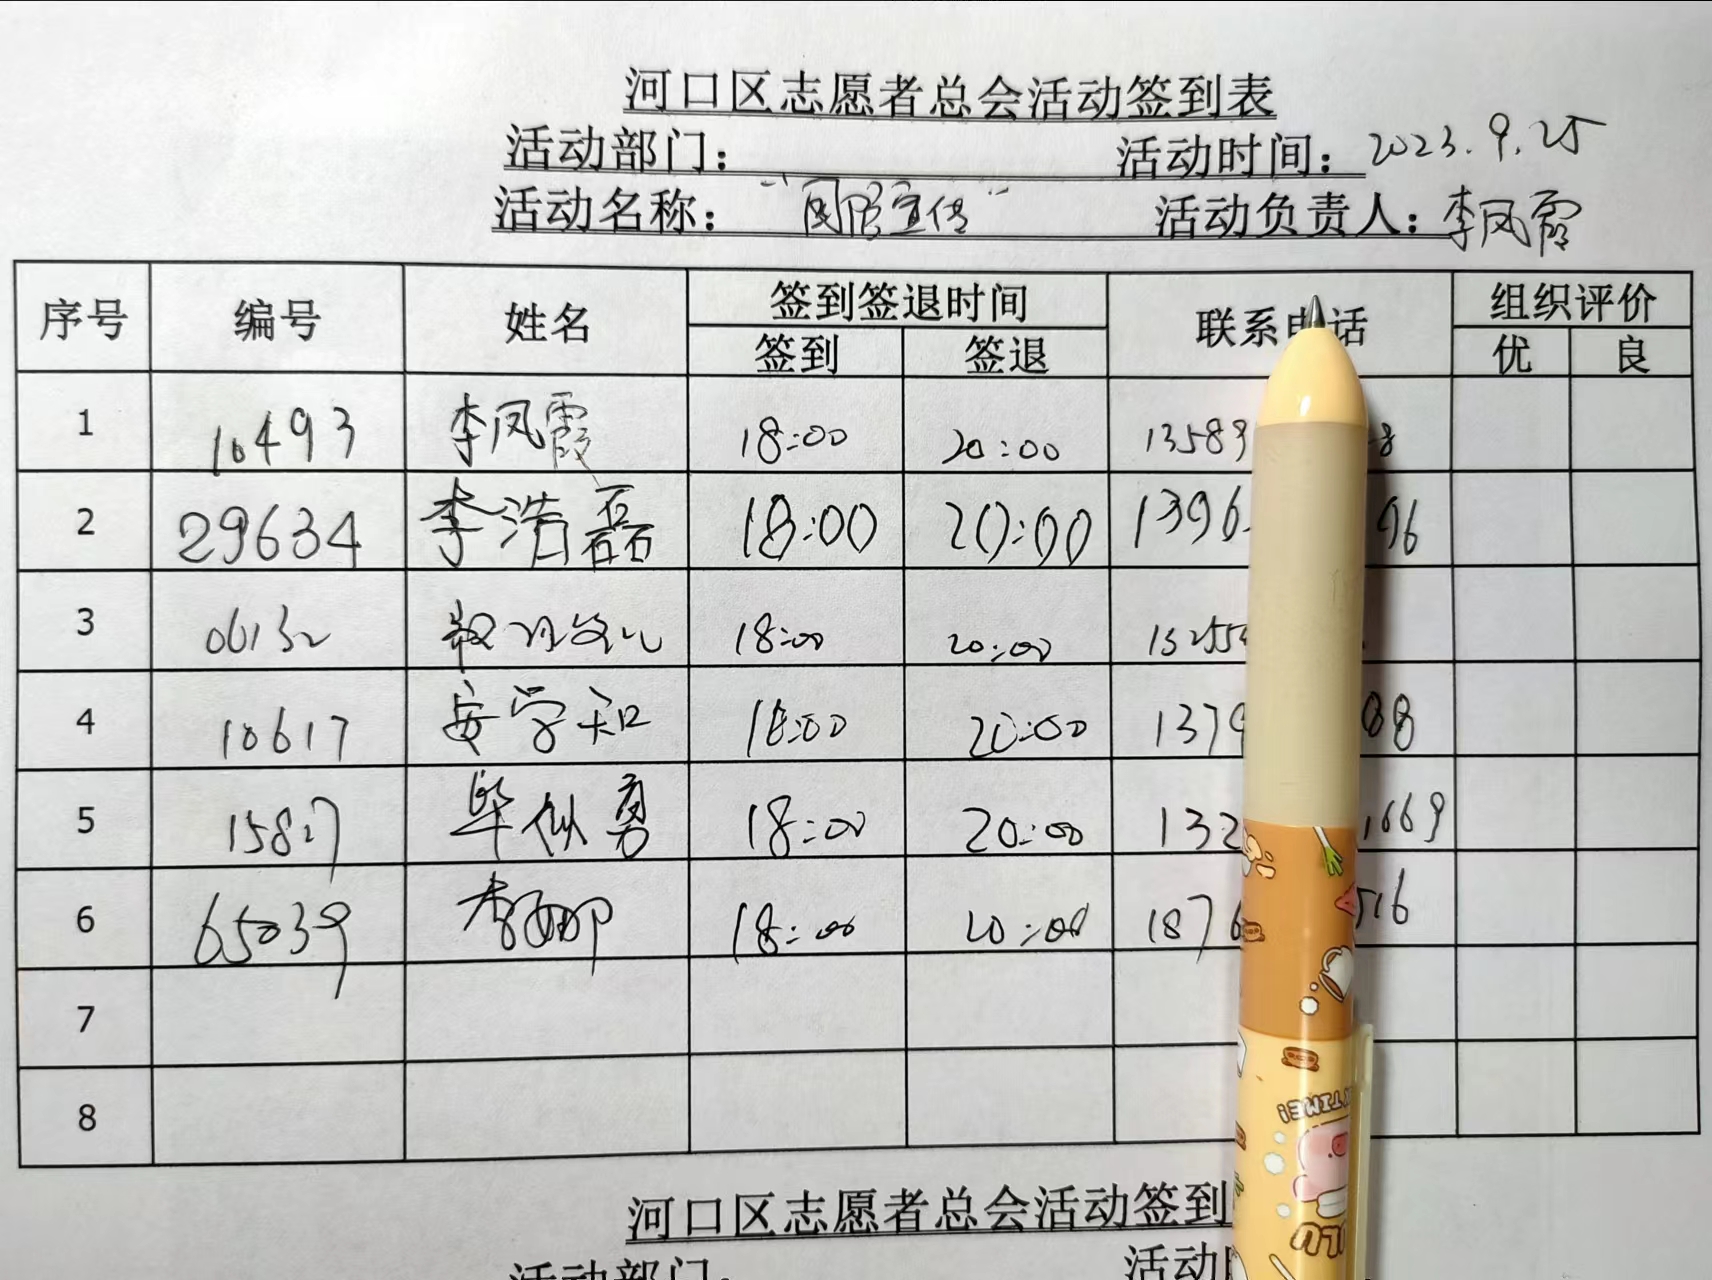 河口区志愿者总会活动签到表
活动部门： 活动时间：2023.9.25
活动名称： 宣传" 活动负责人：李凤霞
序号 编号 姓名 签到签退时间 联系电话 组织评价
签到 签退 优 良
1 10493 李凤霞 18:00 20:00 13589 8
2 29634 李浩磊 18:00 20:00 1396 96
3 06132 18:00 20:00 13255
4 10617 安学知 18:00 20:00 1379 88
5 15827 毕似勇 18:00 20:00 132 1669
6 65039 李娜 18:00 20:00 1876 516
7
8
河口区志愿者总会活动签到
活动部门： 活动
TIME!